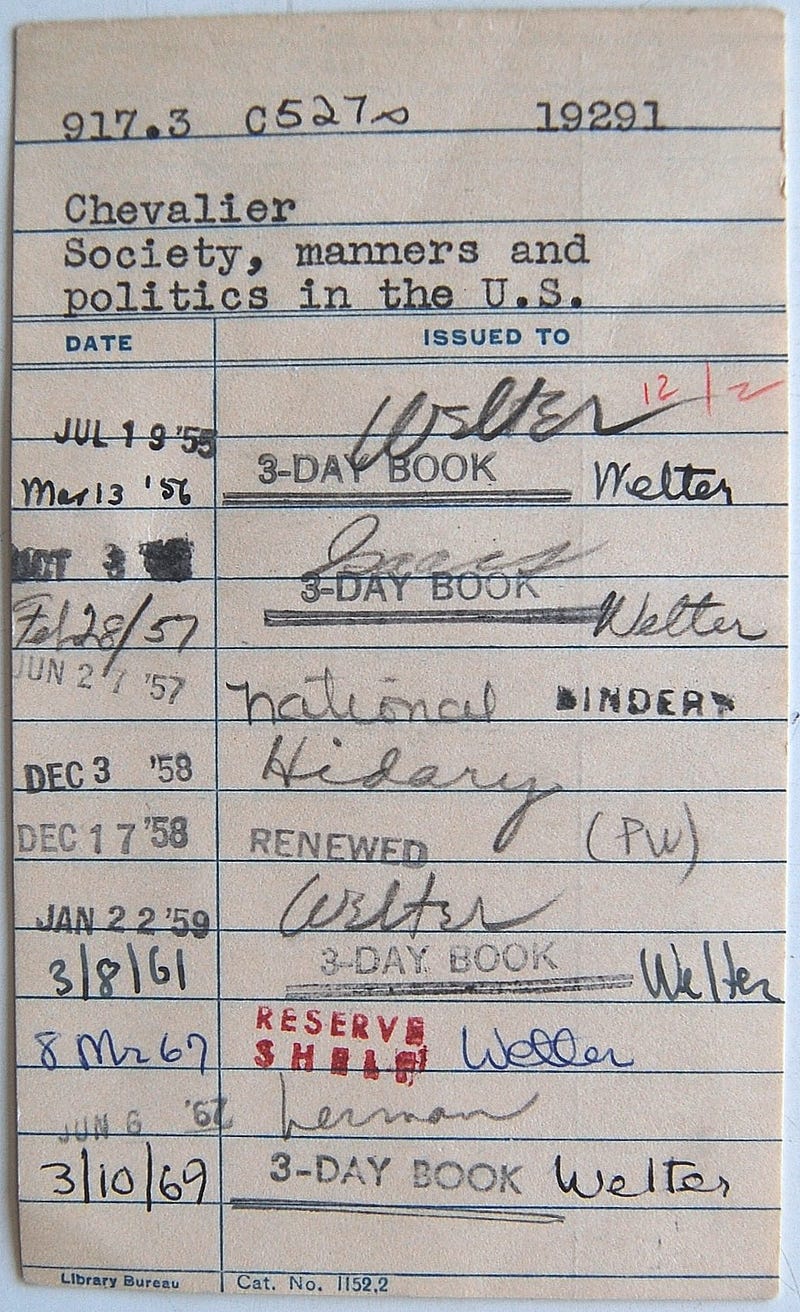 917.3 C527s 19291
Chevalier
Society, manners and
politics in the U.S.
DATE ISSUED TO
JUL 19 '55 Welter 12/2
Mar 13 '56 3-DAY BOOK Welter
3 Isaacs
Feb 28/57 3-DAY BOOK Welter
JUN 27 '57 National BINDERY
DEC 3 '58 Hidary
DEC 17 '58 RENEWED (PW)
JAN 22 '59 Welter
3/8/61 3-DAY BOOK Welter
8 Mr 67 RESERVE SHELF Welter
JUN 6 '67 Lerman
3/10/69 3-DAY BOOK Welter
Library Bureau Cat. No. 1152.2